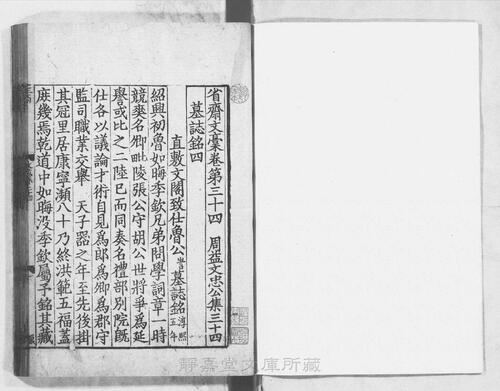 省齋文稾卷第三十四　周益文忠公集三十四
墓誌銘四
直敷文閣致仕魯公訔墓誌銘淳熙五年
紹興初魯如晦季欽兄弟問學詞章一時
競爽名卿毗陵張公守胡公世將爭爲延
譽或比之二陸已而同奏名禮部别院旣
仕各以議論才術自見爲郎爲卿爲郡守
監司職業交舉　天子器之年至先後掛
其冠里居康寧瀕八十乃終洪範五福蓋
庶幾焉乾道中如晦没季欽屬予銘其藏
靜嘉堂文庫所藏